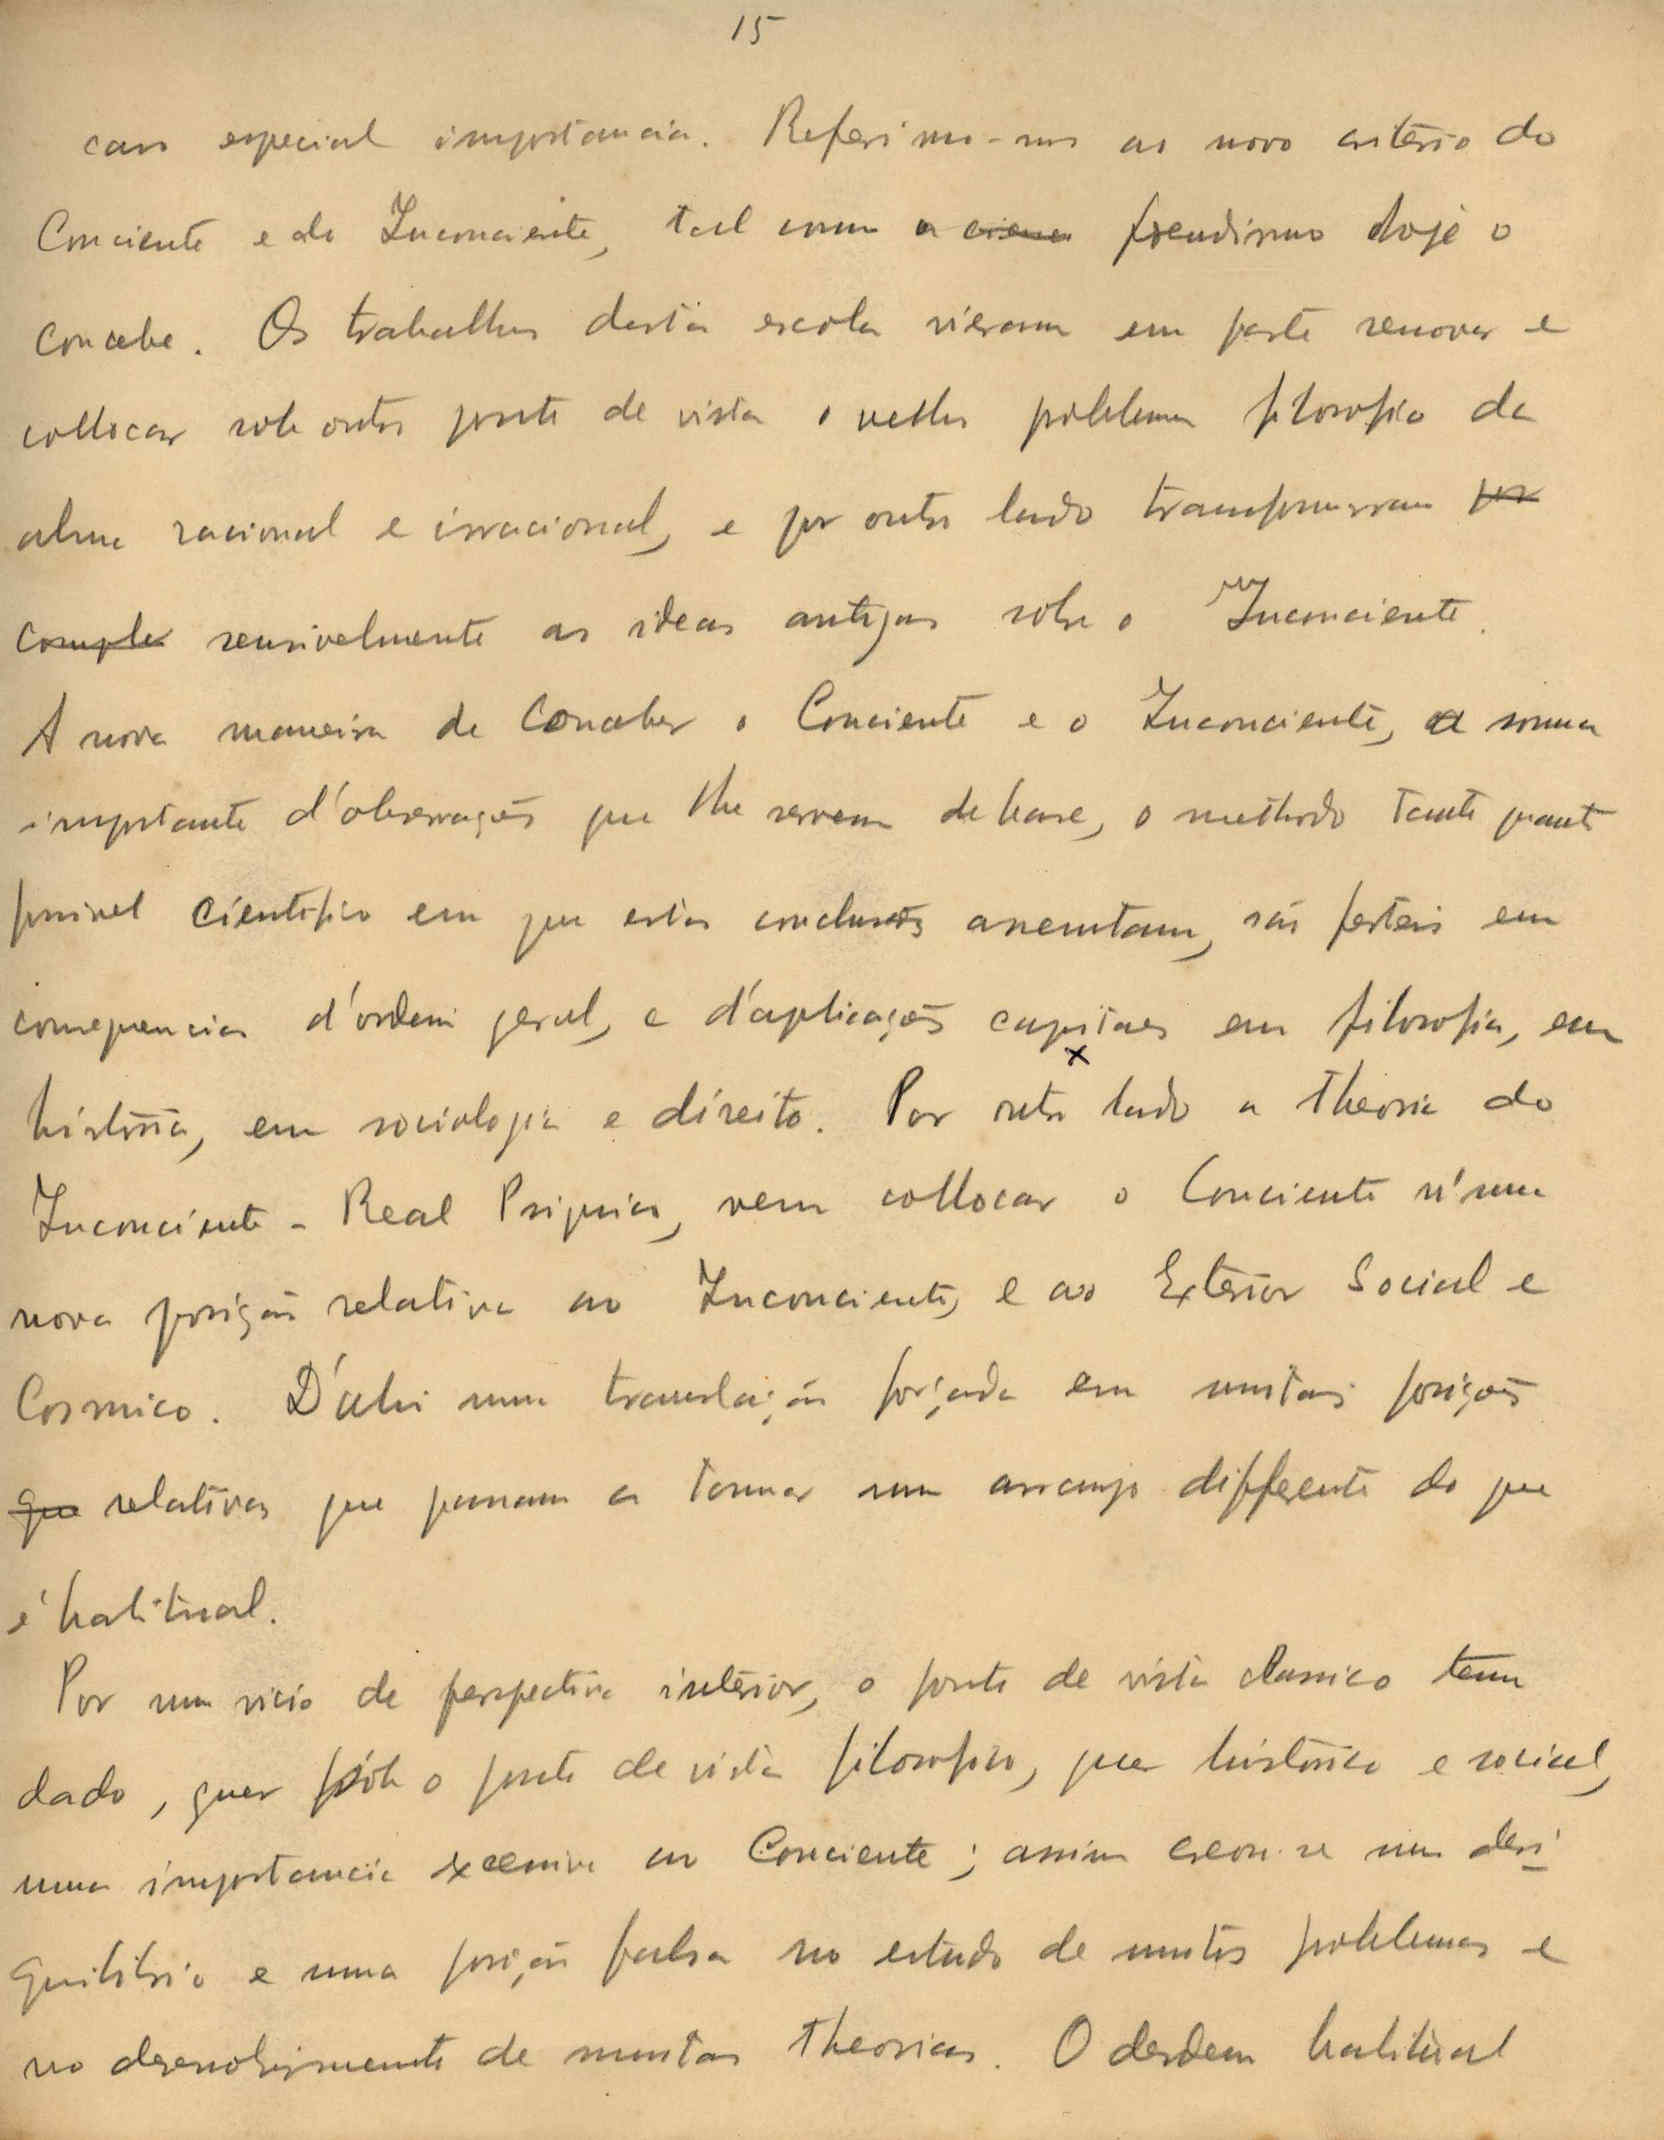 15
caso especial importancia. Referimo-nos ao novo criterio do
Conciente e do Inconciente, tal como a freudismo hoje o
concebe. Os trabalhos desta escola vieram em parte renovar e
collocar sob outro ponto de vista o velho problema filosofico da
alma racional e irracional, e por outro lado transformaram por
comple sensivelmente as ideas antigas sobre o Inconciente.
A nova maneira de conceber o Conciente e o Inconciente, a somma
importante d'observações que lhe servem de base, o methodo tanto quanto
possivel cientifico em que estas conclusões assentam, são ferteis em
consequencias d'ordem geral, e d'aplicações capitaes em filosofia, em
x
historia, em sociologia e direito. Por outro lado a theoria do
Inconciente - Real Psiquico, vem collocar o Conciente n'uma
nova posição relativa ao Inconciente, e ao Exterior Social e
Cosmico. D'ahi uma translação forçada em muitas posições
que relativas que passam a tomar um arranjo differente do que
é habitual.
Por um vicio de perspectiva interior, o ponto de vista classico tem
dado, quer sob o ponto de vista filosofico, quer historico e social,
uma importancia excessiva ao Conciente; assim creou-se um dese
quilibrio e uma posição falsa no estudo de muitos problemas e
no desenvolvimento de muitas theorias. O desdem habitual